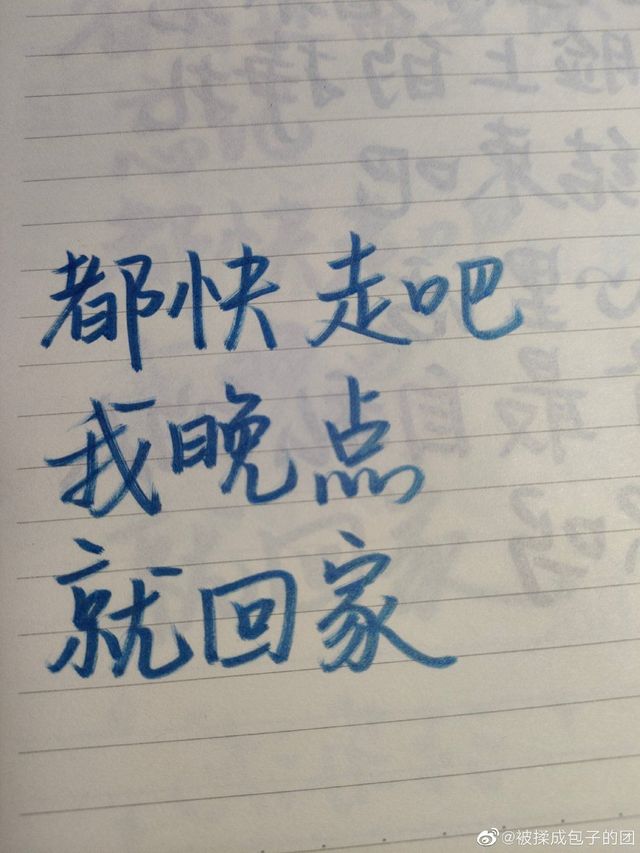 都快走吧
我晚点
就回家
@被揉成包子的团